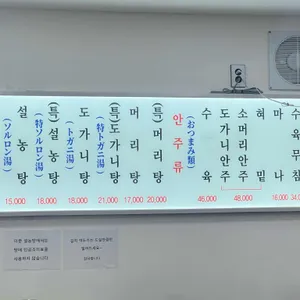 설농탕
(ソルロン湯)
15,000
(특)설농탕
(特ソルロン湯)
18,000
도가니탕
(トガニ湯)
18,000
(특)도가니탕
(特トガニ湯)
21,000
머리탕
17,000
(특)머리탕
20,000
안주류
(おつまみ類)
수육
46,000
도가니안주
소머리안주
혀밑
48,000
마나
16,000
수육무침